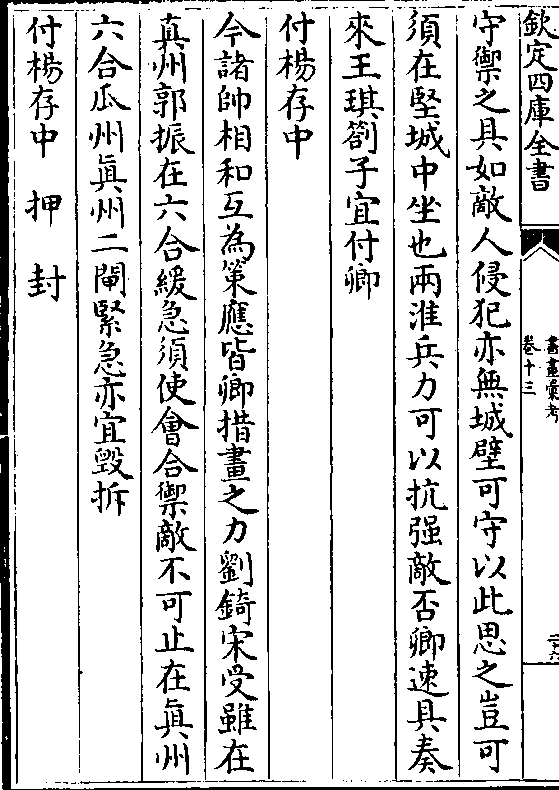 欽定四庫全書
書畫彙考
卷十三
二十六
守禦之具如敵人侵犯亦無城壁可守以此思之豈可
須在堅城中坐也兩淮兵力可以抗强敵否卿速具奏
來王琪劄子宜付卿
付楊存中
今諸帥相和互為策應皆卿措畫之力劉錡宋受雖在
真州郭振在六合緩急須使會合禦敵不可止在眞州
六合瓜州眞州二閘緊急亦宜毀拆
付楊存中　押　封